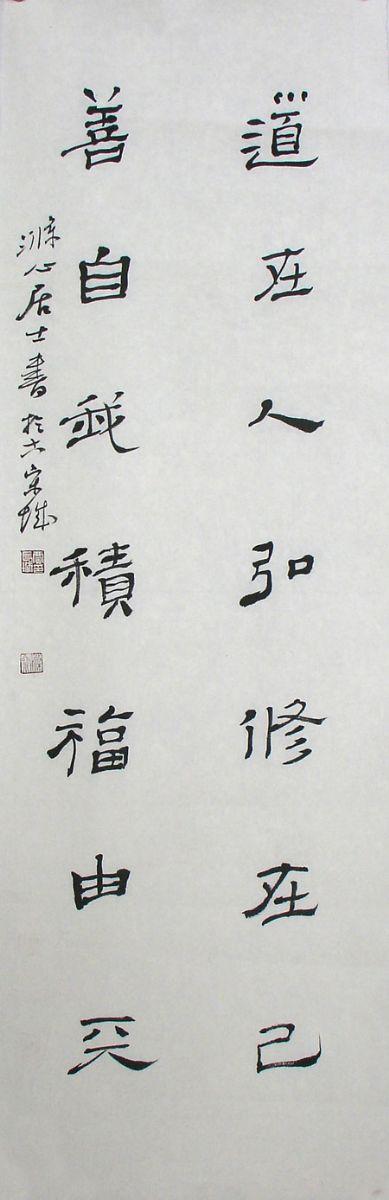 道在人弘修在己
善自我積福由天
滌心居士書於古宋城